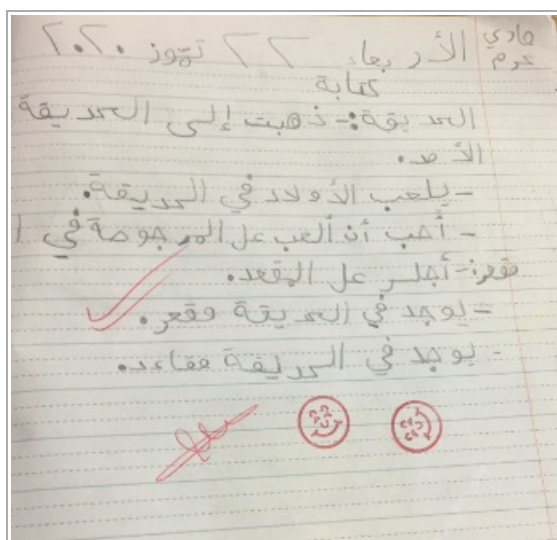 هادي
كرم
الأربعاء ٢٢ تموز ٢٠٢٠
كتابة
الحديقة:- ذهبت إلى الحديقة
الأحد.
- يلعب الأولاد في الحديقة.
- أحب أن ألعب عل المرجوحة في ا
مقعد:- أجلس عل المقعد.
- يوجد في الحديقة مقعد.
- يوجد في الحديقة مقاعد.